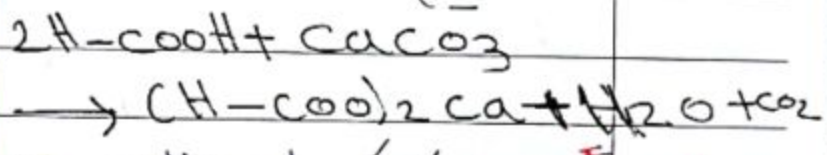 2H-COOH + CaCO3
→ (H-COO)2 Ca + H2O + CO2